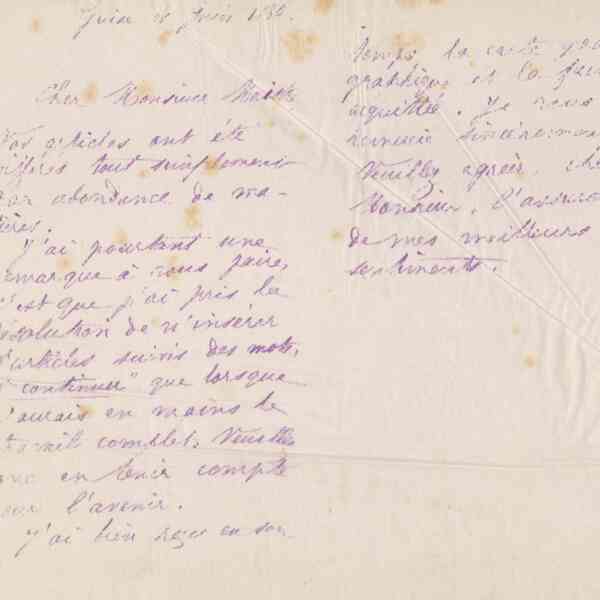 Cher Monsieur
Vos articles ont été
différés tout simplement
par abondance de ma-
tières.
J'ai pourtant une
remarque à vous faire,
c'est que j'ai pris la
résolution de n'insérer
d'articles suivis des mots,
continuer" que lorsque
j'aurais en mains le
travail complet. Veuillez
donc en tenir compte
pour l'avenir.
J'ai bien reçu en son
temps la carte
graphique et la
acquittée. Je vous
remercie sincèrement
Veuillez agréer, cher
Monsieur, l'assurance
de mes meilleurs
sentiments.